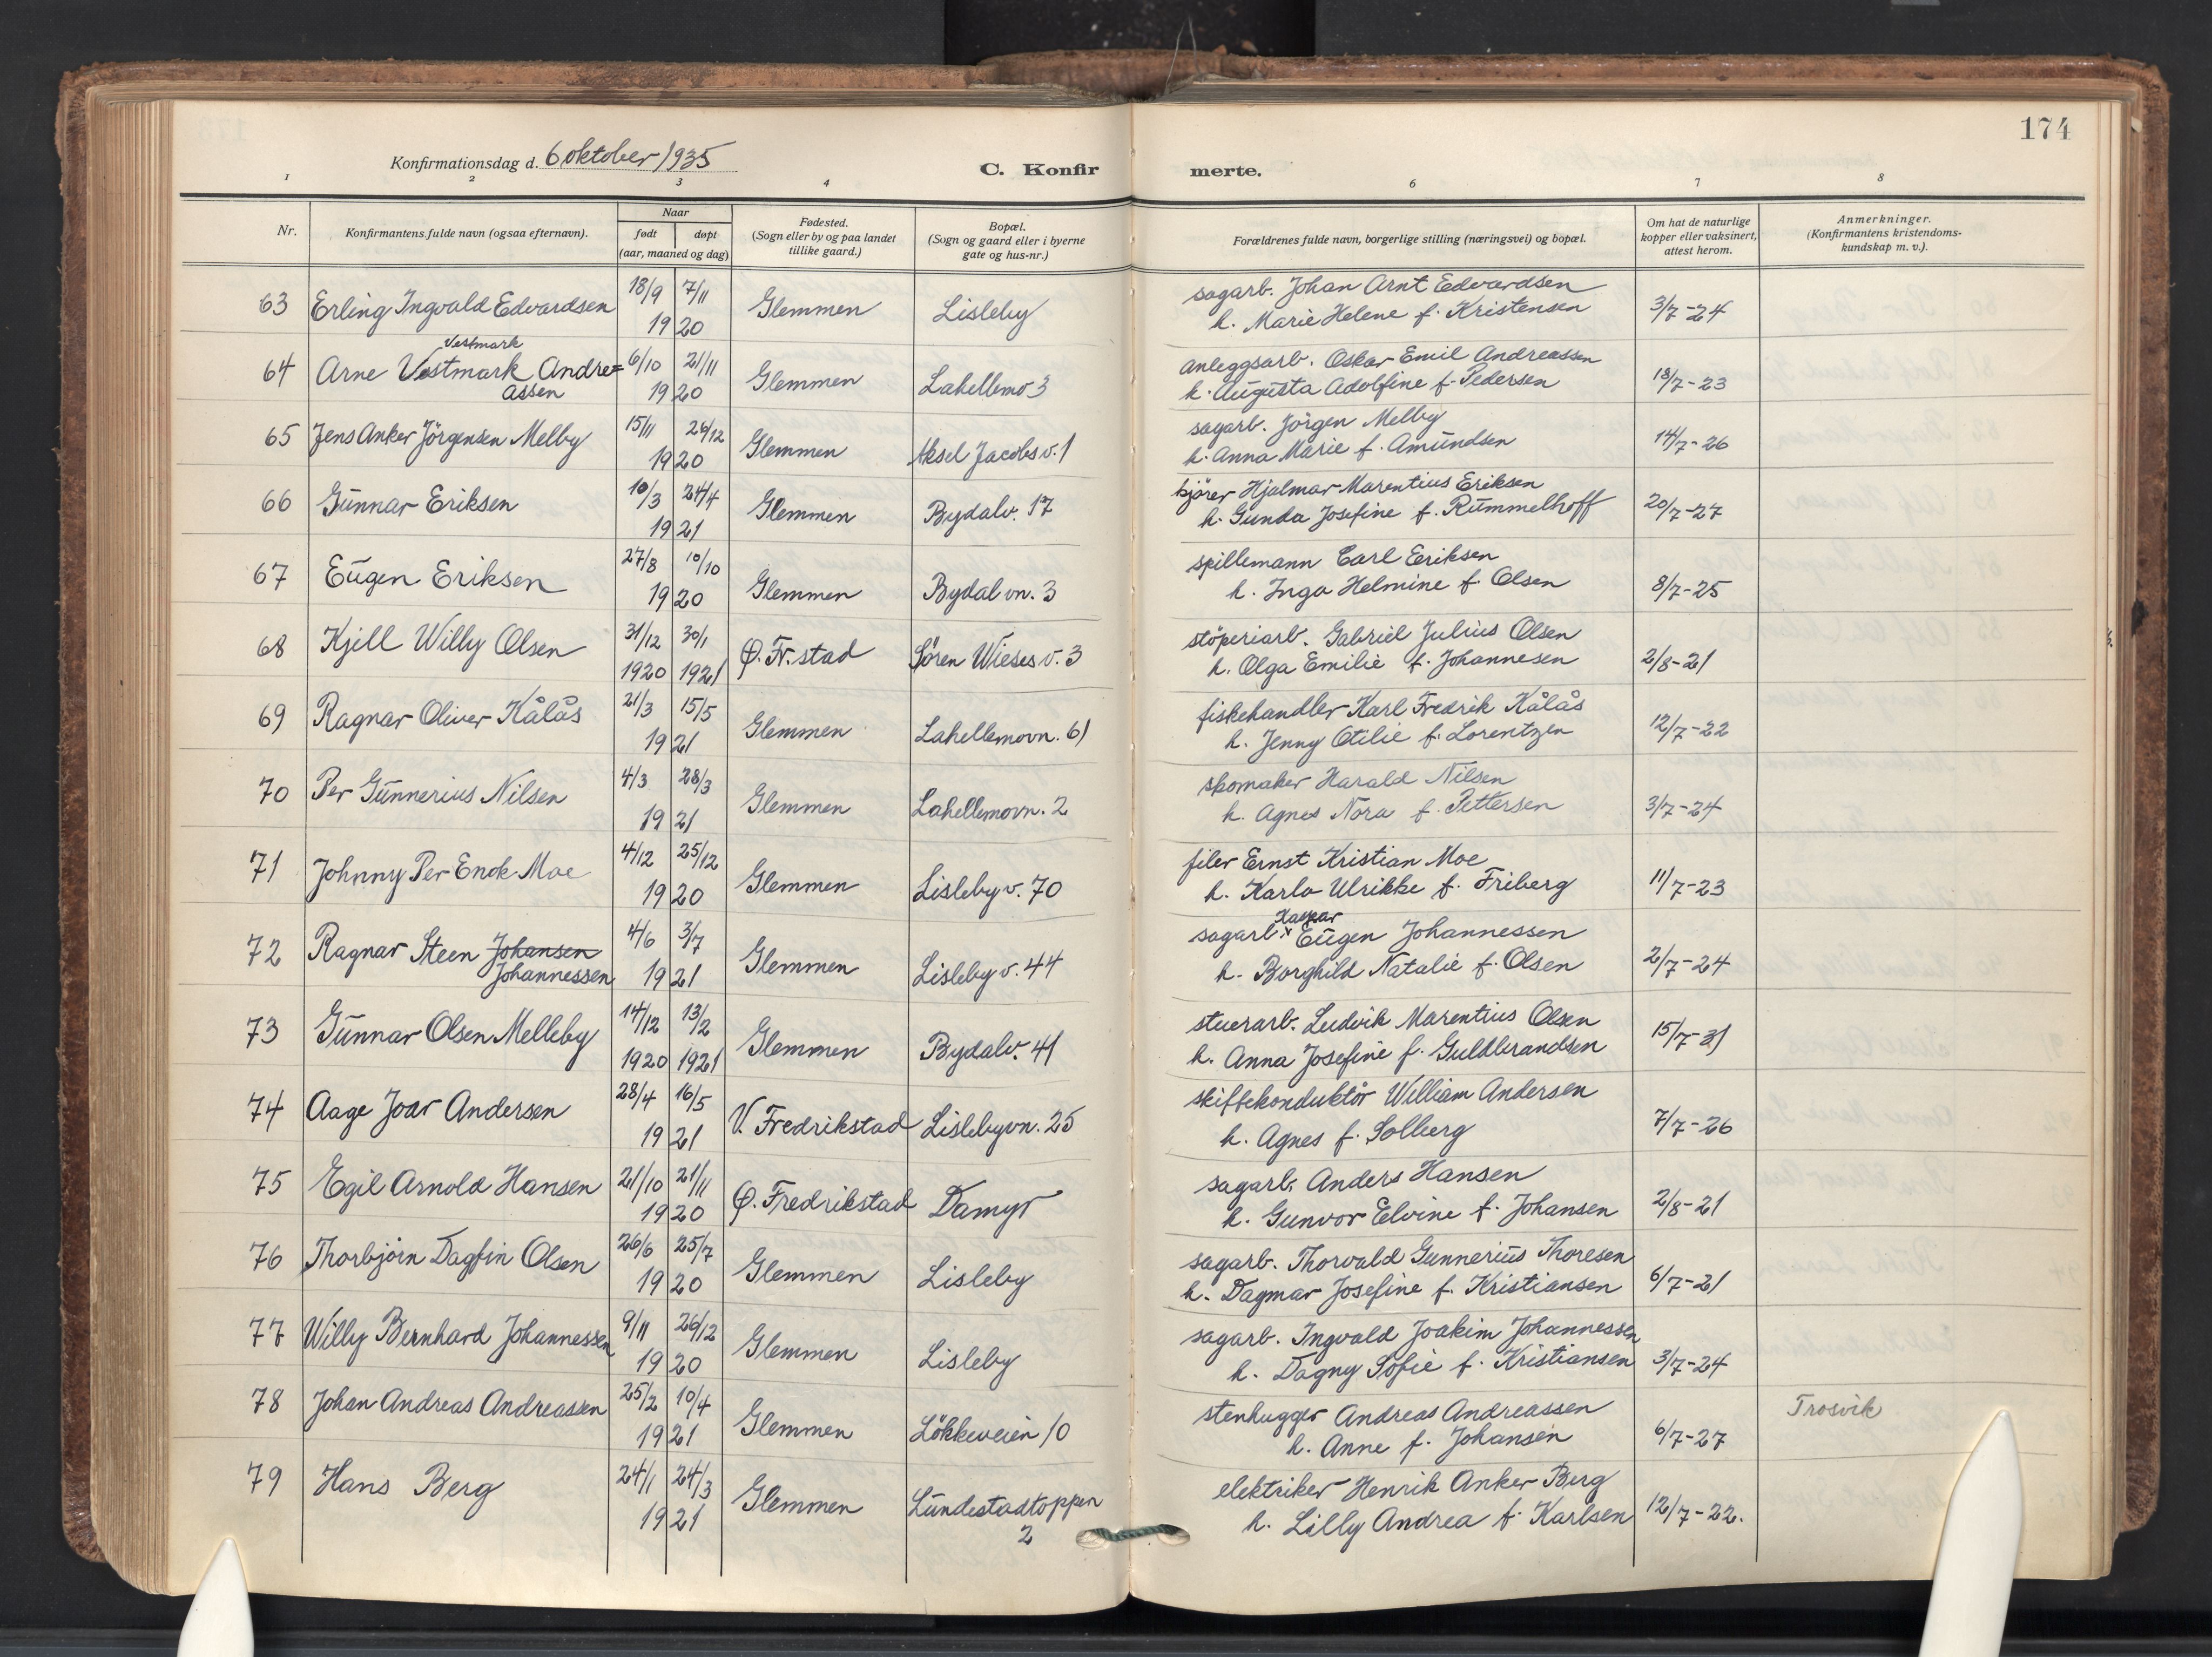 174
Konfirmationsdag d. 6 oktober 1935
C. Konfir merte.
1 2 3 4 6 7 8
Nr.
Konfirmantens fulde navn (ogsaa efternavn).
Naar
født døpt
(aar, maaned og dag)
Fødested.
(Sogn eller by og paa landet
tillike gaard.)
Bopæl.
(Sogn og gaard eller i byerne
gate og hus-nr.)
Forældrenes fulde navn, borgerlige stilling (næringsvei) og bopæl.
Om hat de naturlige
kopper eller vaksinert,
attest herom.
Anmerkninger.
(Konfirmantens kristendoms-
kundskap m. v.).
63 Erling Ingvald Edvardsen 18/9 7/11 1920 Glemmen Lisleby
sagarb. Johan Arnt Edvardsen
h. Marie Helene f. Kristensen 3/7-24
Vestmark
64 Arne Vestmark Andre= 6/10 21/11 Glemmen Lahellemo 3
assen 1920
anleggsarb. Oskar Emil Andreassen
h. Augusta Adolfine f. Pedersen 18/7-23
65 Jens Anker Jörgensen Melby 15/11 26/12 1920 Glemmen Aksel Jacobs v. 1
sagarb. Jörgen Melby
h. Anna Marie f. Amundsen 14/7-26
66 Gunnar Eriksen 10/3 24/4 1921 Glemmen Bydalv. 17
kjörer Hjalmar Marentius Eriksen
h. Gunda Josefine f. Rummelhoff 20/7-27
67 Eugen Eriksen 27/8 10/10 1920 Glemmen Bydalvn. 3
spillemann Carl Eriksen
h. Inga Helmine f. Olsen 8/7-25
68 Kjell Willy Olsen 31/12 30/1 1920 1921 Ø. Fr.stad Sören Wieses v. 3
stöperiarb. Gabriel Julius Olsen
h. Olga Emilie f. Johannesen 2/8-21
69 Ragnar Oliver Kålås 21/3 15/5 1921 Glemmen Lahellemovn. 61
fiskehandler Karl Fredrik Kålås
h. Jenny Otilie f. Lorentzen 12/7-22
70 Per Gunnerius Nilsen 4/3 28/3 1921 Glemmen Lahellemovn. 2
skomaker Harald Nilsen
h. Agnes Nora f. Pettersen 3/7-24
71 Johnny Per Enok Moe 4/12 25/12 1920 Glemmen Lisleby v. 70
filer Ernst Kristian Moe
h. Karla Ulrikke f. Friberg 11/7-23
72 Ragnar Steen Johansen 4/6 3/7 Glemmen Lisleby v. 44
Johannessen 1921
Kaspar
sagarb. x Eugen Johannessen
h. Borghild Natalie f. Olsen 2/7-24
73 Gunnar Olsen Melleby 14/12 13/2 1920 1921 Glemmen Bydalv. 41
stuerarb. Ludvik Marentius Olsen
h. Anna Josefine f. Guldbrandsen 15/7-31
74 Aage Joar Andersen 28/4 16/5 1921 V. Fredrikstad Lislebyvn. 25
skiftekonduktör William Andersen
h. Agnes f. Solberg 7/7-26
75 Egil Arnold Hansen 21/10 21/11 1920 Ø. Fredrikstad Damyr
sagarb. Anders Hansen
h. Gunvor Elvine f. Johansen 2/8-21
76 Thorbjörn Dagfin Olsen 26/6 25/7 1920 Glemmen Lisleby
sagarb. Thorvald Gunnerius Thoresen
h. Dagmar Josefine f. Kristiansen 6/7-21
77 Willy Bernhard Johannessen 9/11 26/12 1920 Glemmen Lisleby
sagarb. Ingvald Joakim Johannessen
h. Dagny Sofie f. Kristiansen 3/7-24
78 Johan Andreas Andreassen 25/2 10/4 1921 Glemmen Lökkeveien 10
stenhugger Andreas Andreassen Trosvik
h. Anne f. Johansen 6/7-27
79 Hans Berg 24/1 24/3 1921 Glemmen Lundestadtoppen
2
elektriker Henrik Anker Berg
h. Lilly Andrea f. Karlsen 12/7-22.